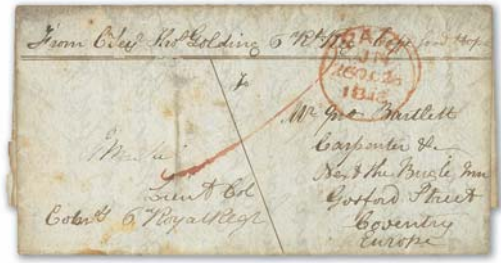 From C Serj Thos Golding 6 Rl Regt Cape Good Hope
PAID
JN
26
Mr Jno Bartlett
Carpenter &c
Next the Bugle Inn
Gosford Street
Coventry
Europe
Lieut Col
Comg 6 Royal Regt